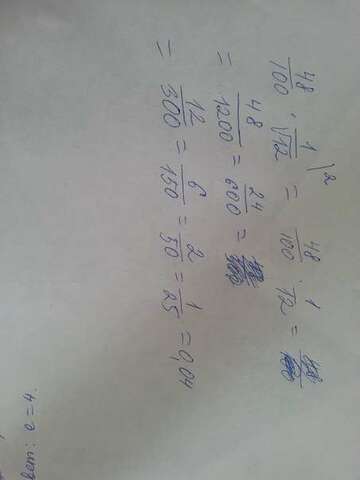 48/100 · 1/√12)² = 48/100 · 1/12 =
= 48/1200 = 24/600 =
= 12/300 = 6/150 = 2/50 = 1/25 = 0,04
вет: a = 4.